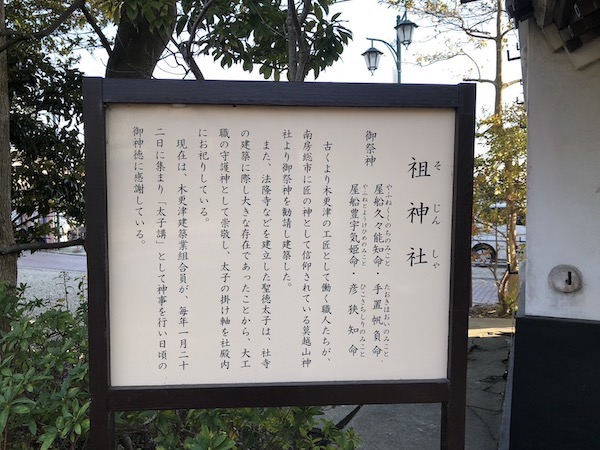 祖神社
そじんしゃ
御祭神
屋船久々能知命 手置帆負命
やふねくくのちのみこと たおきほおいのみこと
屋船豊宇気姫命・彦狭知命
やふねとようけひめのみこと ひこさちしりのみこと
古くより木更津の工匠として働く職人たちが、
南房総市に匠の神として信仰されている莫越山神
社より御祭神を勧請し建築した。
また、法隆寺などを建立した聖徳太子は、社寺
の建築に際し大きな存在であったことから、大工
職の守護神として崇敬し、太子の掛け軸を社殿内
にお祀りしている。
現在は、木更津建築業組合員が、毎年一月二十
二日に集まり「太子講」として神事を行い日頃の
御神徳に感謝している。